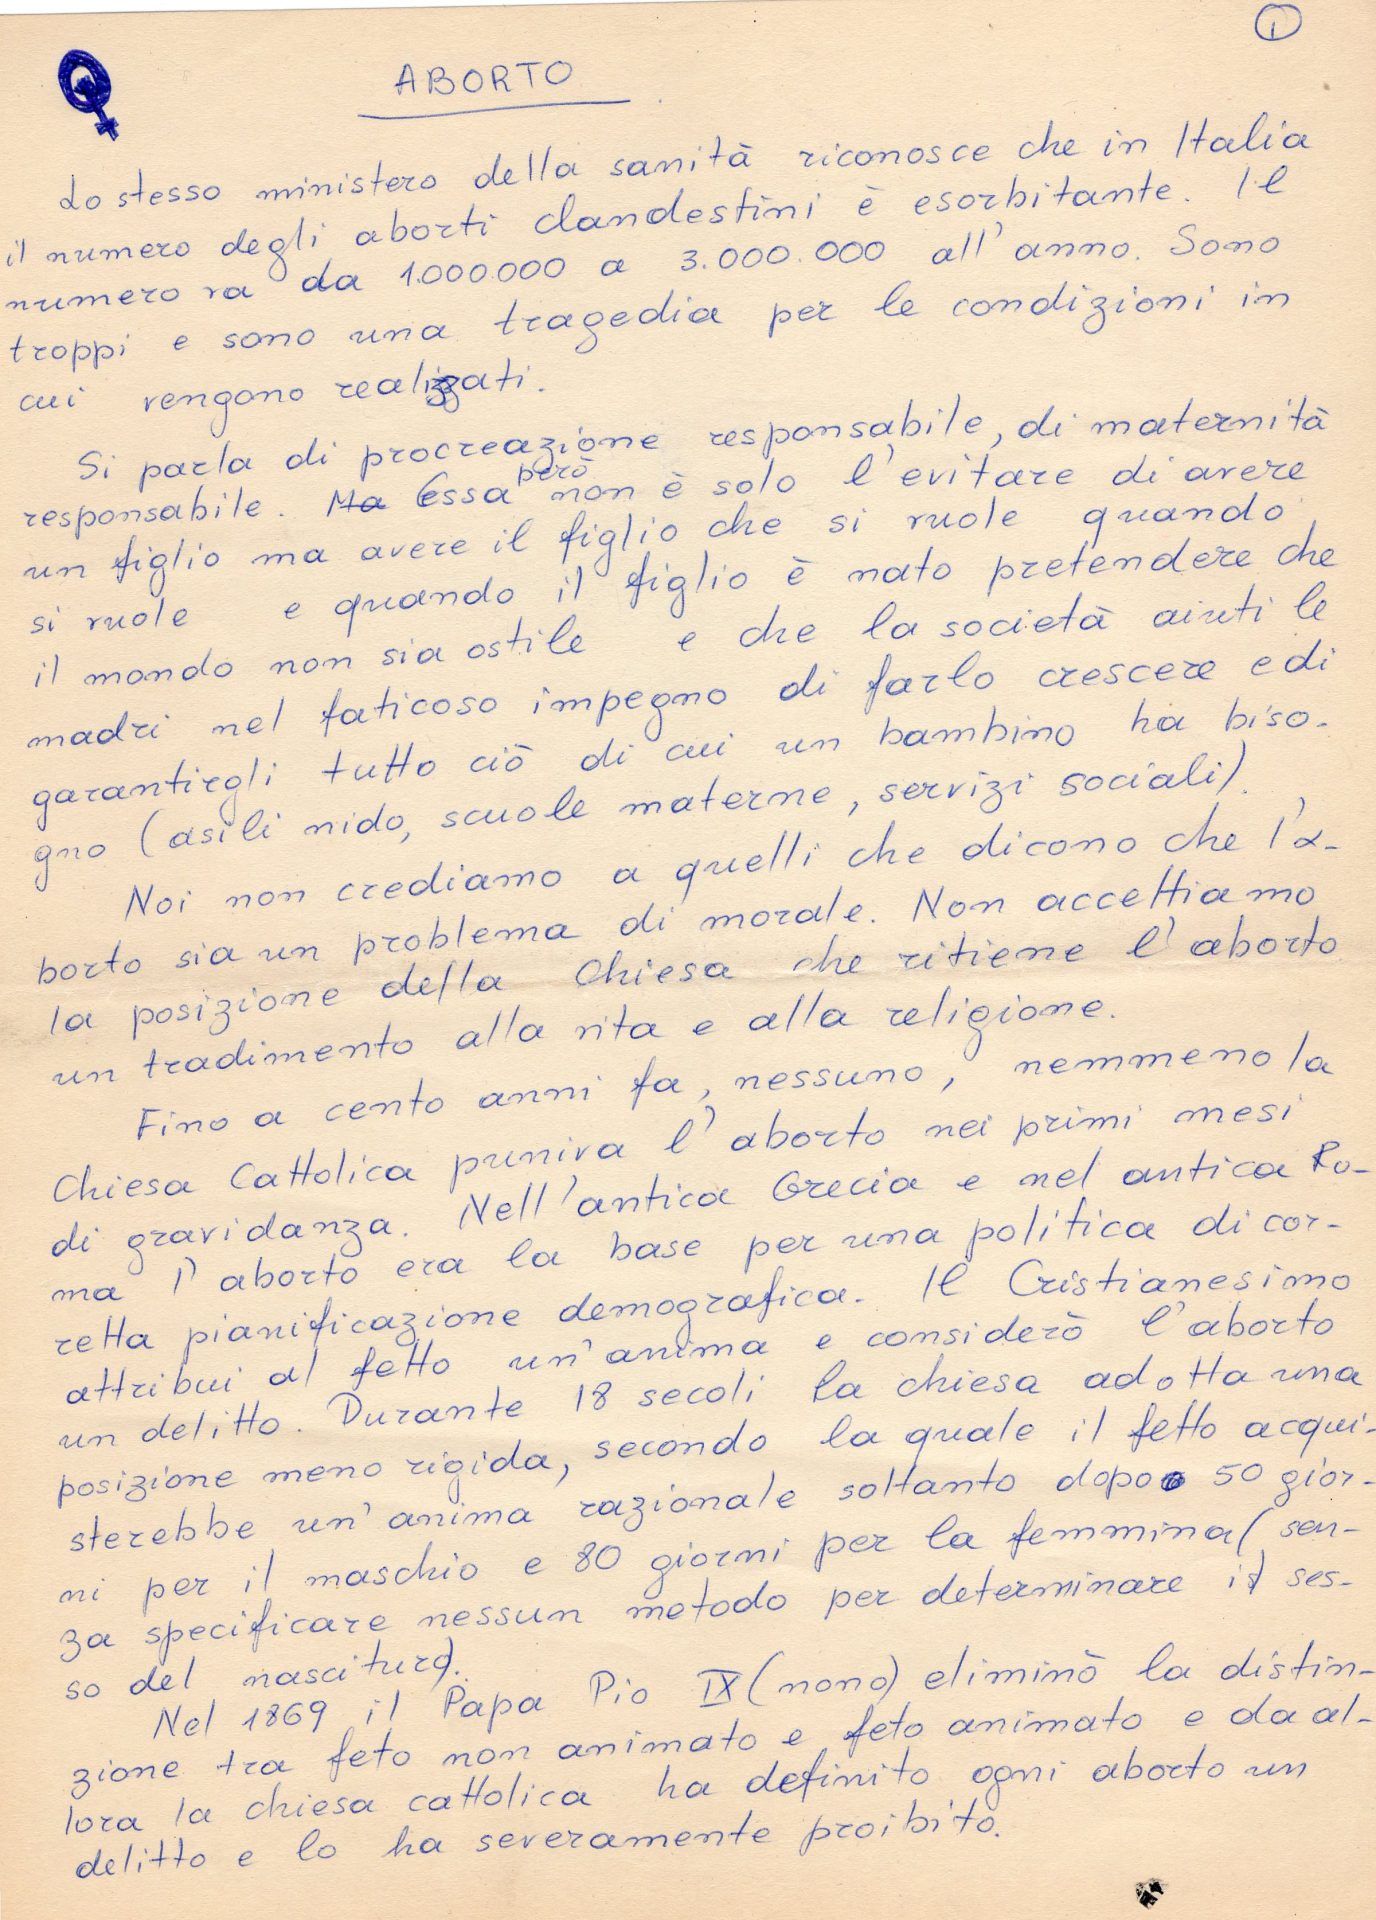 1
ABORTO
Lo stesso ministero della sanità riconosce che in Italia
il numero degli aborti clandestini è esorbitante. Il
numero va da 1.000.000 a 3.000.000 all'anno. Sono
troppi e sono una tragedia per le condizioni in
cui vengono realizzati.
Si parla di procreazione responsabile, di maternità
responsabile. Ma Essa però non è solo l'evitare di avere
un figlio ma avere il figlio che si vuole quando
si vuole e quando il figlio è nato pretendere che
il mondo non sia ostile e che la società aiuti le
madri nel faticoso impegno di farlo crescere e di
garantirgli tutto ciò di cui un bambino ha biso-
gno (asili nido, scuole materne, servizi sociali).
Noi non crediamo a quelli che dicono che l'a-
borto sia un problema di morale. Non accettiamo
la posizione della Chiesa che ritiene l'aborto
un tradimento alla vita e alla religione.
Fino a cento anni fa, nessuno, nemmeno la
Chiesa Cattolica puniva l'aborto nei primi mesi
di gravidanza. Nell'antica Grecia e nel antica Ro-
ma l'aborto era la base per una politica di cor-
retta pianificazione demografica. Il Cristianesimo
attribui al fetto un'anima e considerò l'aborto
un delitto. Durante 18 secoli la chiesa adotta una
posizione meno rigida, secondo la quale il fetto acqui-
sterebbe un'anima razionale soltanto dopo 50 gior-
ni per il maschio e 80 giorni per la femmina (sen-
za specificare nessun metodo per determinare il ses-
so del nascituro).
Nel 1869 il Papa Pio IX (nono) eliminò la distin-
zione tra feto non animato e feto animato e da al-
lora la chiesa cattolica ha definito ogni aborto un
delitto e lo ha severamente proibito.